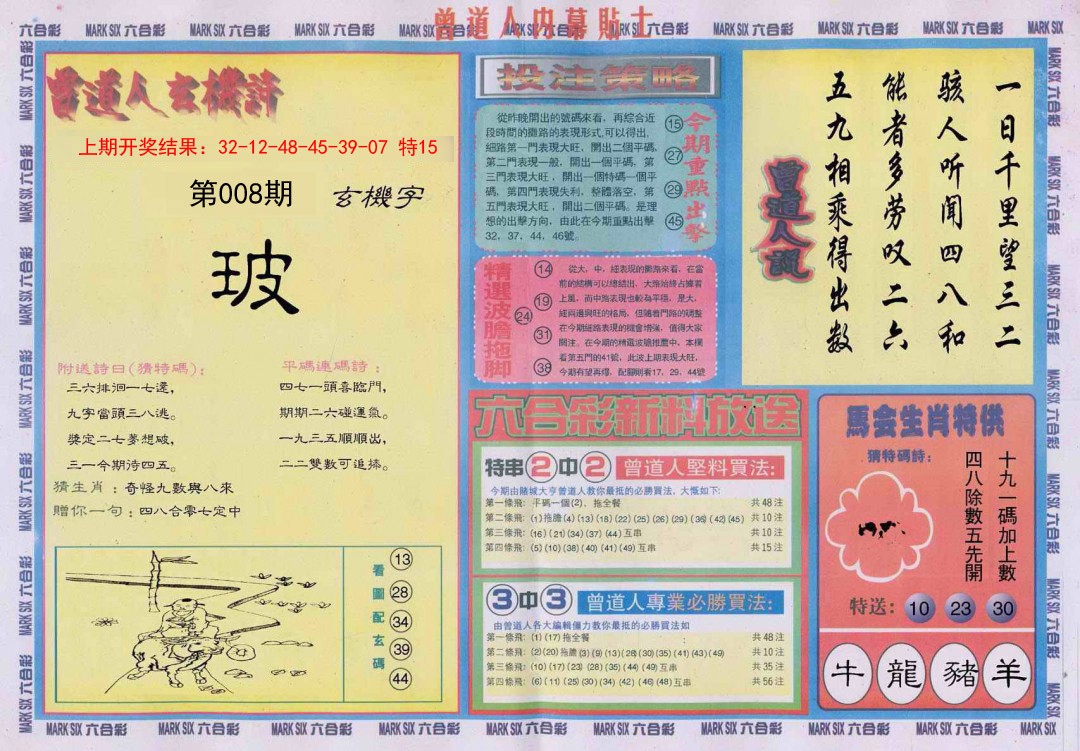 曾道人内幕貼士
六合彩 MARK SIX 六合彩 MARK SIX 六合彩 MARK SIX 六合彩 MARK SIX 六合彩 MARK SIX 六合彩 MARK SIX 六合彩 MARK SIX 六合彩 MARK SIX 六合彩 MARK SIX
曾道人玄機詩
上期开奖结果：32-12-48-45-39-07 特15
第008期
玄機字
玻
附送詩曰(猜特碼)：
三六排洄一七還，
九字當頭三八逃。
獎定二七夢想破，
三一今期待四五。
平碼連碼詩：
四七一頭喜臨門，
期期二六碰運氣。
一九三五順順出，
二二雙數可追捧。
猜生肖：奇怪九數與八來
贈你一句：四八合零七定中
看圖配玄碼
13
28
34
39
44
投注策略
從昨晚開出的號碼來看，再綜合近
段時間的攤路的表現形式，可以得出，
細路第一門表現大旺，開出二個平碼，
第二門表現一般，開出一個平碼，第
三門表現大旺，開出一個特碼一個平
碼，第四門表現失利，整體落空，第
五門表現大旺，開出二個平碼。是理
想的出擊方向，由此在今期重點出擊
32，37，44，46號。
15
27
29
45
今期重點出擊
精選波膽拖脚
14
19
24
31
38
從大、中、細表現的攤路來看，在當
前的結構可以總結出，大路始終占據着
上風，而中路表現也較為平穩，是大、
細兩邊興旺的格局，但隨着門路的調整
在今期細路表現的機會增強，值得大家
關注。在今期的精選波膽推薦中，本欄
看第五門的41號，此波上期表現大旺，
今期有望再爆，配腳則看17，29，44號
一日千里望三二
駭人听闻四八和
能者多劳叹二六
五九相乘得出数
曾道人說
六合彩新料放送
特串2中2 曾道人堅料買法：
今期由賭城大亨曾道人教你最抵的必勝買法，大慨如下：
第一條飛：平碼一個(2)，拖全餐 共48注
第二條飛：(1)拖膽(4)(13)(18)(22)(25)(26)(29)(36)(42)(45) 共10注
第三條飛：(16)(21)(34)(37)(44)互串 共10注
第四條飛：(5)(10)(38)(40)(41)(49)互串 共15注
3中3 曾道人專業必勝買法：
由曾道人各大編輯僵力教你最抵的必勝買法如
第一條飛：(1)(17)拖全餐 共48注
第二條飛：(2)(20)拖膽(3)(9)(13)(28)(30)(35)(41)(43)(49) 共10注
第三條飛：(10)(17)(23)(28)(35)(44)(49)互串 共35注
第四條飛：(6)(11)(25)(30)(34)(42)(46)(48)互串 共56注
馬会生肖特供
猜特碼詩：
十九一碼加上數
四八除數五先開
特送：10 23 30
牛 龍 豬 羊
MARK SIX 六合彩 MARK SIX 六合彩 MARK SIX 六合彩 MARK SIX 六合彩 MARK SIX 六合彩 MARK SIX 六合彩 MARK SIX 六合彩 MARK SIX 六合彩 MARK SIX 六合彩 MARK SIX